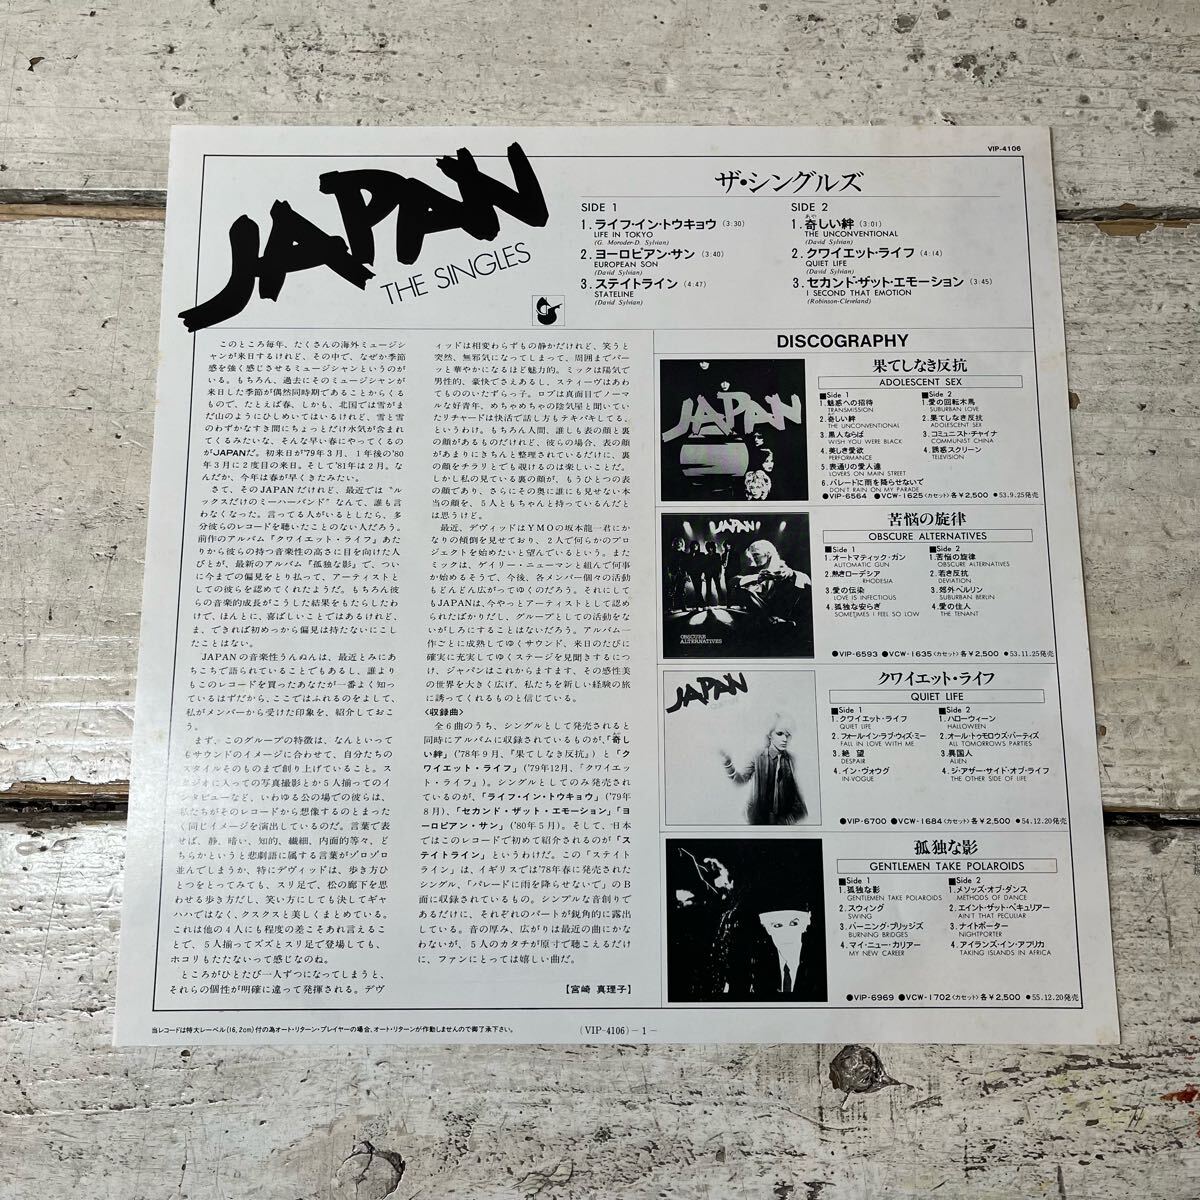 VIP-4106
JAPAN
THE SINGLES
ザ・シングルズ
SIDE 1
1. ライフ・イン・トウキョウ (3:30)
LIFE IN TOKYO
(G. Moroder-D. Sylvian)
2. ヨーロピアン・サン (3:40)
EUROPEAN SON
(David Sylvian)
3. ステイトライン (4:47)
STATELINE
(David Sylvian)
SIDE 2
1. 奇しい絆 (3:01)
THE UNCONVENTIONAL
(David Sylvian)
2. クワイエット・ライフ (4:14)
QUIET LIFE
(David Sylvian)
3. セカンド・ザット・エモーション (3:45)
I SECOND THAT EMOTION
(Robinson-Cleveland)
このところ毎年、たくさんの海外ミュージシ
ャンが来日するけれど、その中で、なぜか季節
感を強く感じさせるミュージシャンというのが
いる。もちろん、過去にそのミュージシャンが
来日した季節が偶然同時期であることからくる
もので、たとえば春、しかも、北国では雪がま
だ山のようにひしめいてはいるけれど、雪と雪
のわずかなすき間にちょっとだけ水気が含まれ
てくるみたいな、そんな早い春にやってくるの
がJAPANだ。初来日が'79年3月、1年後の'80
年3月に2度目の来日。そして'81年は2月。な
んだか、今年は春が早くきたみたい。
さて、そのJAPANだけれど、最近では“ル
ックスだけのミーハーバンド”なんて、誰も言
わなくなった。言ってる人がいるとしたら、多
分彼らのレコードを聴いたことのない人だろう。
前作のアルバム『クワイエット・ライフ』あた
りから彼らの持つ音楽性の高さに目を向けた人
びとが、最新のアルバム『孤独な影』で、つい
に今までの偏見をとり払って、アーティストと
しての彼らを認めてくれたようだ。もちろん彼
らの音楽的成長がこうした結果をもたらしたわ
けで、ほんとに、喜ばしいことではあるけれど、
ま、できれば初めっから偏見は持たないにこし
たことはない。
JAPANの音楽性うんぬんは、最近とみにあ
ちこちで語られていることでもあるし、誰より
もこのレコードを買ったあなたが一番よく知っ
ているはずだから、ここではふれるのをよして、
私がメンバーから受けた印象を、紹介しておこ
う。
まず、このグループの特徴は、なんといって
もサウンドのイメージに合わせて、自分たちの
スタイルそのものまで創り上げていること。ス
タジオに入っての写真撮影とか5人揃ってのイ
ンタビューなど、いわゆる公の場での彼らは、
私たちがそのレコードから想像するのとまった
く同じイメージを演出しているのだ。言葉で表
せば、静、暗い、知的、繊細、内面的等々、ど
ちらかというと悲劇語に属する言葉がゾロゾロ
並んでしまうか、特にデヴィッドは、歩き方ひ
とつをとってみても、スリ足で、松の廊下を思
わせる歩き方だし、笑い方にしても決してギャ
ハハではなく、クスクスと美しくまとめている。
これは他の4人にも程度の差こそあれ言えるこ
とで、5人揃ってズズとスリ足で登場しても、
ホコリもたたないって感じなのね。
ところがひとたび一人ずつになってしまうと、
それらの個性が明確に違って発揮される。デヴ
ィッドは相変わらずもの静かだけれど、笑うと
突然、無邪気になってしまって、周囲までパー
ッと華やかになるほど魅力的。ミックは陽気で
男性的、豪快でさえあるし、スティーヴはあわ
てもののいたずらっ子。ロブは真面目でノーマ
ルな好青年、めちゃめちゃの陰気屋と聞いてい
たリチャードは快活で話し方もテキパキしてる。
というわけ。もちろん人間、誰しも表の顔と裏
の顔があるものだけれど、彼らの場合、表の顔
があまりにきちんと整理されているだけに、裏
の顔をチラリとでも覗けるのは楽しいことだ。
しかし私の見ている裏の顔が、もうひとつの表
の顔であり、さらにその奥に誰にも見せない本
当の顔を、5人ともちゃんと持っているんだと
は思うけど。
最近、デヴィッドはYMOの坂本龍一君にか
なりの傾倒を見せており、2人で何らかのプロ
ジェクトを始めたいと望んでいるという。また
ミックは、ゲイリー・ニューマンと組んで何事
か始めるそうで、今後、各メンバー個々の活動
もどんどん広がってゆくのだろう。それにして
もJAPANは、今やっとアーティストとして認め
られたばかりだし、グループとしての活動をな
いがしろにすることはないだろう。アルバム一
作ごとに成熟してゆくサウンド、来日のたびに
確実に充実してゆくステージを見聞きするにつ
け、ジャパンはこれからますます、その感性美
の世界を大きく広げ、私たちを新しい経験の旅
に誘ってくれるものと信じている。
〈収録曲〉
全6曲のうち、シングルとして発売されると
同時にアルバムに収録されているものが、「奇し
い絆」('78年9月、『果てしなき反抗』)と「ク
ワイエット・ライフ」('79年12月、『クワイエッ
ト・ライフ』)。シングルとしてのみ発売されて
いるのが、「ライフ・イン・トウキョウ」('79年
8月)、「セカンド・ザット・エモーション」「ヨ
ーロピアン・サン」('80年5月)。そして、日本
ではこのレコードで初めて紹介されるのが「ス
テイトライン」というわけだ。この「ステイト
ライン」は、イギリスでは'78年春に発売された
シングル、「パレードに雨を降らせないで」のB
面に収録されているもの。シンプルな音創りで
あるだけに、それぞれのパートが鋭角的に露出
している。音の厚み、広がりは最近の曲にかな
わないが、5人のカタチが原寸で聴こえるだけ
に、ファンにとっては嬉しい曲だ。
【宮崎 真理子】
DISCOGRAPHY
JAPAN
果てしなき反抗
ADOLESCENT SEX
■Side 1
1. 魅惑への招待
TRANSMISSION
2. 奇しい絆
THE UNCONVENTIONAL
3. 黒人ならば
WISH YOU WERE BLACK
4. 美しき愛欲
PERFORMANCE
5. 表通りの愛人達
LOVERS ON MAIN STREET
6. パレードに雨を降らせないで
DON'T RAIN ON MY PARADE
■Side 2
1. 愛の回転木馬
SUBURBAN LOVE
2. 果てしなき反抗
ADOLESCENT SEX
3. コミュニスト・チャイナ
COMMUNIST CHINA
4. 誘惑スクリーン
TELEVISION
●VIP-6564 ●VCW-1625〈カセット〉各¥2,500 ●53.9.25発売
JAPAN
OBSCURE
ALTERNATIVES
苦悩の旋律
OBSCURE ALTERNATIVES
■Side 1
1. オートマティック・ガン
AUTOMATIC GUN
2. 熱きローデシア
RHODESIA
3. 愛の伝染
LOVE IS INFECTIOUS
4. 孤独な安らぎ
SOMETIMES I FEEL SO LOW
■Side 2
1. 苦悩の旋律
OBSCURE ALTERNATIVES
2. 若き反抗
DEVIATION
3. 郊外ベルリン
SUBURBAN BERLIN
4. 愛の住人
THE TENANT
●VIP-6593 ●VCW-1635〈カセット〉各¥2,500 ●53.11.25発売
JAPAN
クワイエット・ライフ
QUIET LIFE
■Side 1
1. クワイエット・ライフ
QUIET LIFE
2. フォール・イン・ラブ・ウィズ・ミー
FALL IN LOVE WITH ME
3. 絶望
DESPAIR
4. イン・ヴォウグ
IN-VOGUE
■Side 2
1. ハローウィーン
HALLOWEEN
2. オール・トゥモロウズ・パーティズ
ALL TOMORROWS PARTIES
3. 異国人
ALIEN
4. ジ・アザー・サイド・オブ・ライフ
THE OTHER SIDE OF LIFE
●VIP-6700 ●VCW-1684〈カセット〉各¥2,500 ●54.12.20発売
孤独な影
GENTLEMEN TAKE POLAROIDS
■Side 1
1. 孤独な影
GENTLEMEN TAKE POLAROIDS
2. スウィング
SWING
3. バーニング・ブリッジズ
BURNING BRIDGES
4. マイ・ニュー・カリアー
MY NEW CAREER
■Side 2
1. メソッズ・オブ・ダンス
METHODS OF DANCE
2. エイント・ザット・ペキュリアー
AIN'T THAT PECULIAR
3. ナイトポーター
NIGHTPORTER
4. アイランズ・イン・アフリカ
TAKING ISLANDS IN AFRICA
●VIP-6969 ●VCW-1702〈カセット〉各¥2,500 ●55.12.20発売
当レコードは特大レーベル(16.2cm)付の為オート・リターン・プレイヤーの場合、オート・リターンが作動しませんので御了承下さい。
(VIP-4106)-1-